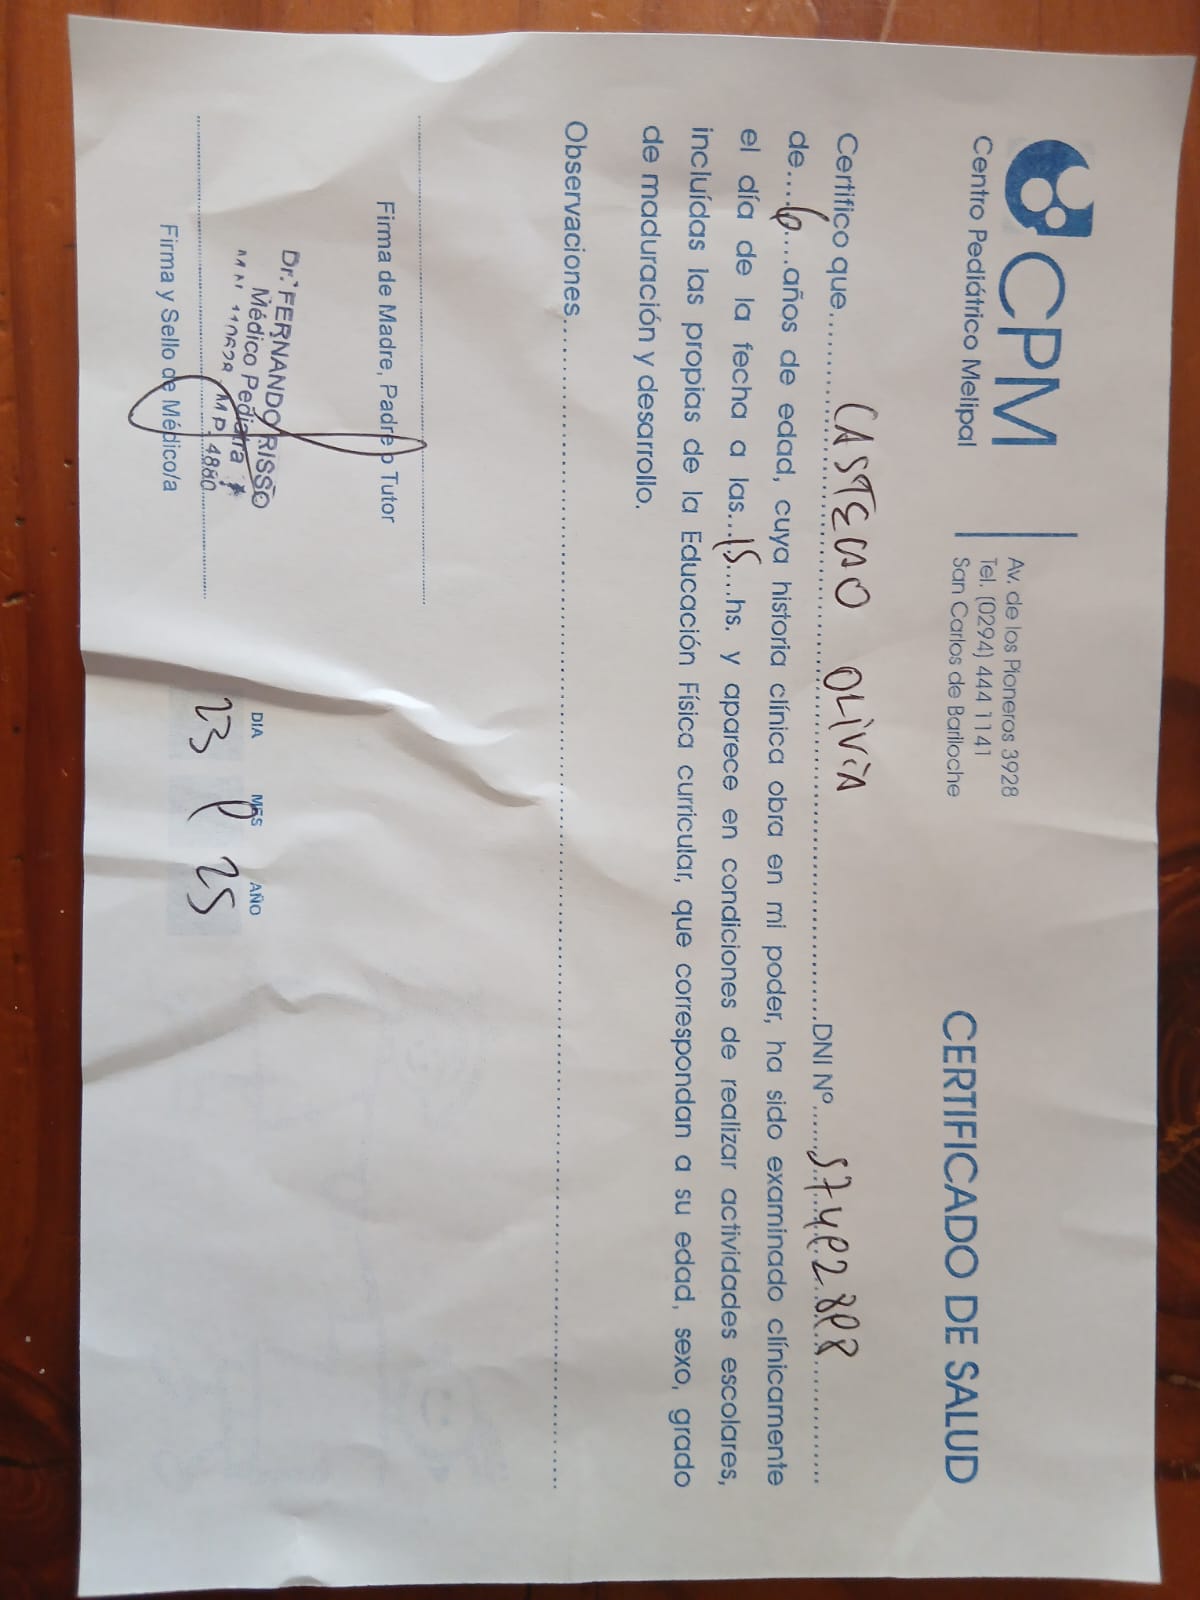 CPM
Centro Pediátrico Melipal
Av. de los Pioneros 3928
Tel. (0294) 444 1141
San Carlos de Bariloche
CERTIFICADO DE SALUD
Certifico que CASTECSO OLIVIA DNI Nº
de 6 años de edad, cuya historia clínica obra en mi poder, ha sido examinado clínicamente
el día de la fecha a las 15 hs. y aparece en condiciones de realizar actividades escolares,
incluídas las propias de la Educación Física curricular, que correspondan a su edad, sexo, grado
de maduración y desarrollo.
Observaciones
Firma de Madre, Padre o Tutor
Dr. FERNANDO RISSO
Médico Pediatra
M.N. 110628 M.P. 4880
Firma y Sello de Médico/a
DIA MES AÑO
23 25